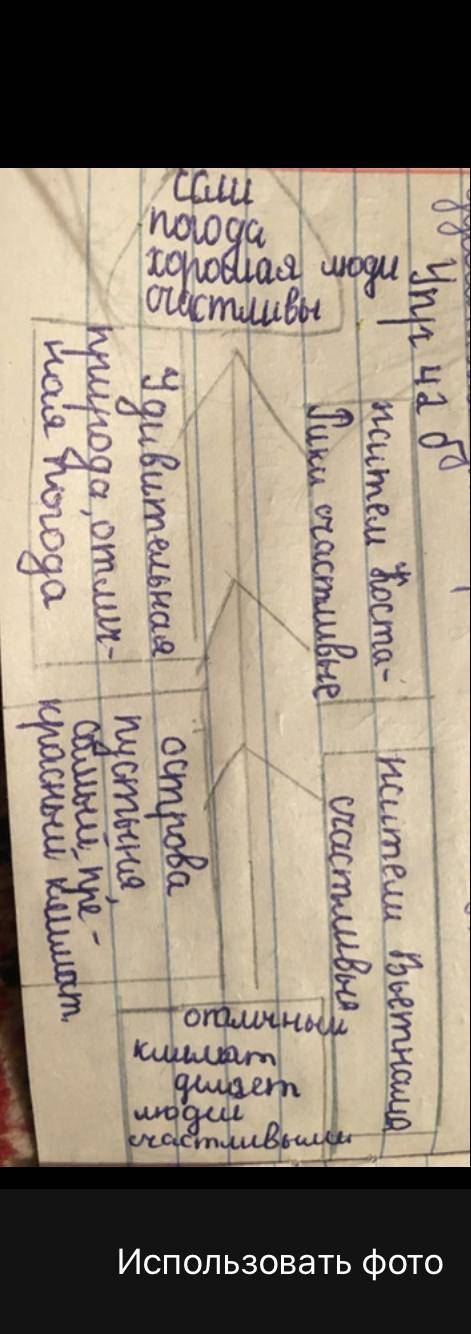 Упр 42 б
если
погода
хорошая люди
счастливы
жители Коста-
Рики счастливые
жители Вьетнама
счастливые
Удивительная
природа, отлич-
ная погода
острова
пустыня,
самый пре-
красный климат.
отличный
климат
делает
людей
счастливыми
Использовать фото